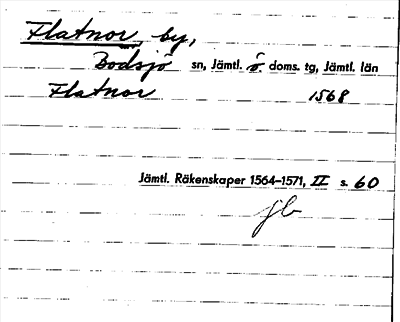 Flatnor by,
Bodsjö sn, Jämtl. ö. doms. tg, Jämtl. län
Flatnor 1568
Jämtl. Räkenskaper 1564–1571, II s. 60
jb